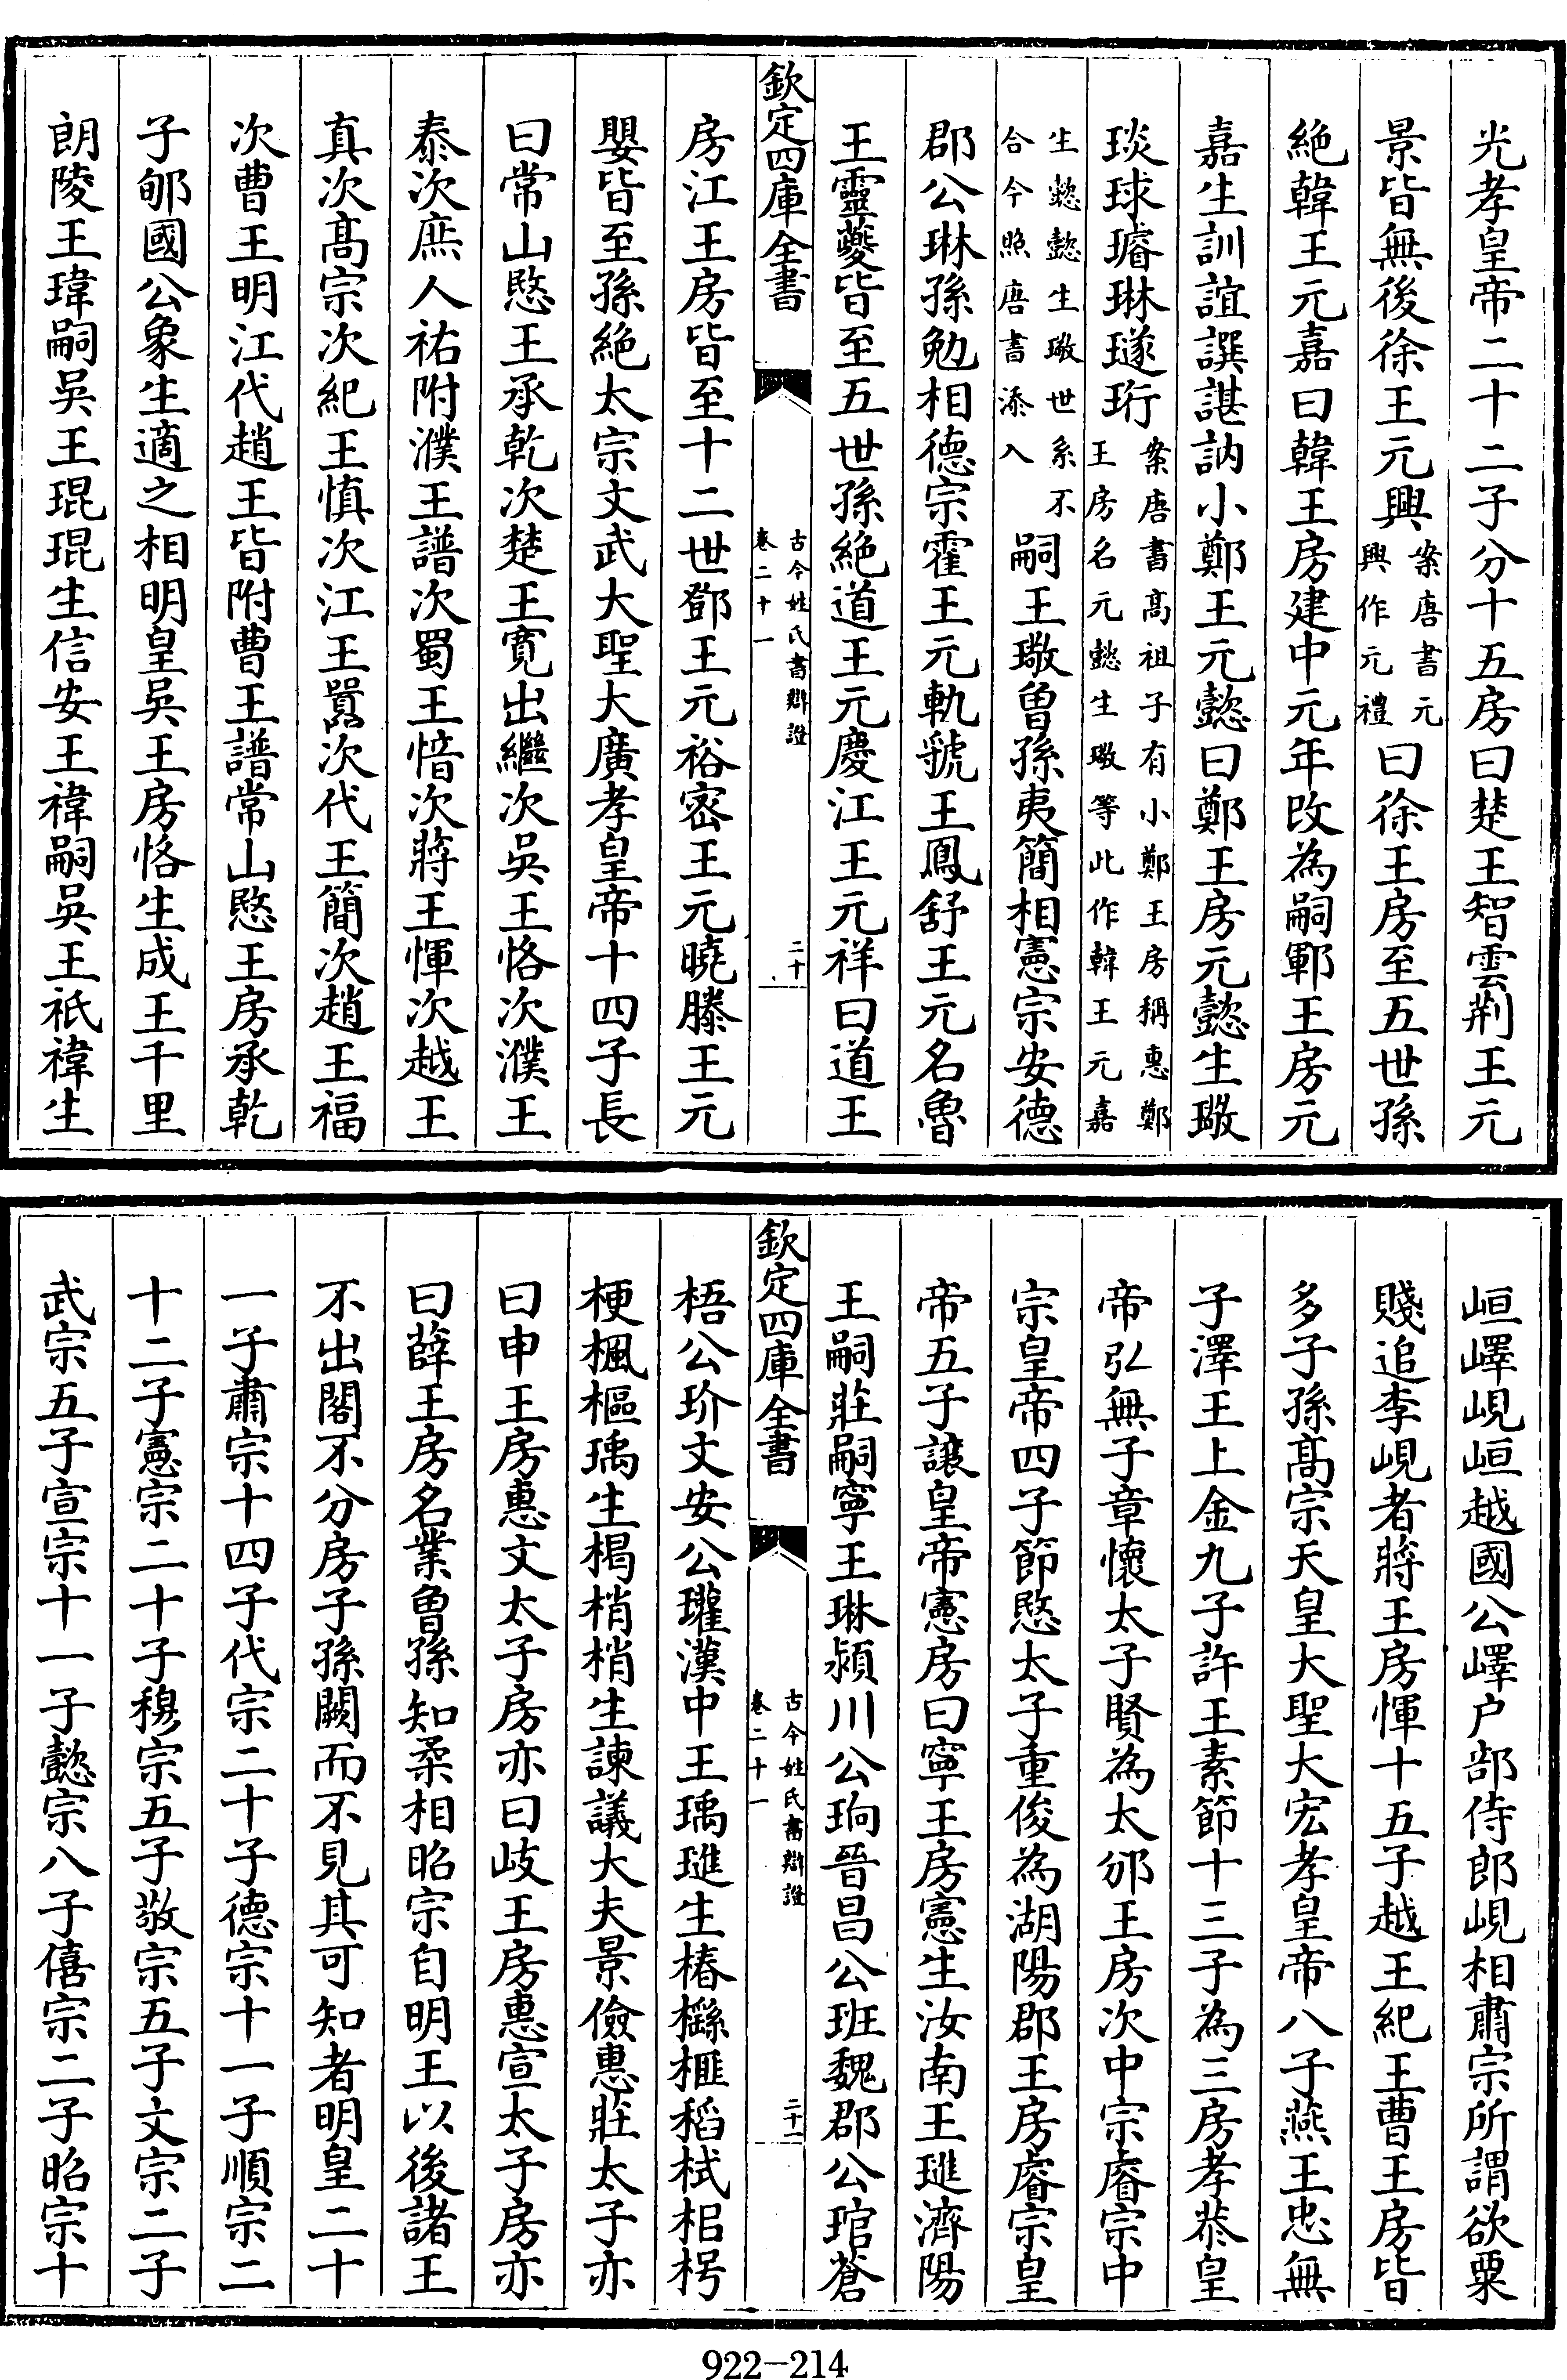 光孝皇帝二十二子分十五房曰楚王智雲荆王元
景皆無後徐王元興案唐書元興作元禮曰徐王房至五世孫
絶韓王元嘉曰韓王房建中元年改為嗣鄆王房元
嘉生訓誼譔諶訥小鄭王元懿曰鄭王房元懿生璥
琰球璿琳璲珩案唐書高祖子有小鄭王房稱惠鄭王房名元懿生璥等此作韓王元嘉
生懿懿生璥世系不合今照唐書添入嗣王璥曾孫夷簡相憲宗安德
郡公琳孫勉相德宗霍王元軌虢王鳳舒王元名魯
王靈夔皆至五世孫絶道王元慶江王元祥曰道王
欽定四庫全書
古今姓氏書辯證
卷二十一
二十
房江王房皆至十二世鄧王元裕密王元曉滕王元
嬰皆至孫絶太宗文武大聖大廣孝皇帝十四子長
曰常山愍王承乾次楚王寛出繼次吳王恪次濮王
泰次庶人祐附濮王譜次蜀王愔次蔣王惲次越王
真次髙宗次紀王慎次江王嚚次代王簡次趙王福
次曹王明江代趙王皆附曹王譜常山愍王房承乾
子郇國公象生適之相明皇吳王房恪生成王千里
朗陵王瑋嗣吳王琨琨生信安王禕嗣吳王祇禕生
峘嶧峴峘越國公嶧户部侍郎峴相肅宗所謂欲粟
賤追李峴者蔣王房惲十五子越王紀王曹王房皆
多子孫髙宗天皇大聖大宏孝皇帝八子燕王忠無
子澤王上金九子許王素節十三子為三房孝㳟皇
帝弘無子章懷太子賢為太邠王房次中宗睿宗中
宗皇帝四子節愍太子重俊為湖陽郡王房睿宗皇
帝五子讓皇帝憲房曰寧王房憲生汝南王璡濟陽
王嗣莊嗣寧王琳潁川公珦晉昌公班魏郡公琯蒼
欽定四庫全書
古今姓氏書辯證
卷二十一
二十一
梧公玠文安公瓘漢中王瑀璡生椿櫾榧稻栻梠枵
梗楓樞瑀生楬梢梢生諫議大夫景儉惠莊太子亦
曰申王房惠文太子房亦曰岐王房惠宣太子房亦
曰薛王房名業曾孫知柔相昭宗自明王以後諸王
不出閣不分房子孫闕而不見其可知者明皇二十
一子肅宗十四子代宗二十子德宗十一子順宗二
十二子憲宗二十子穆宗五子敬宗五子文宗二子
武宗五子宣宗十一子懿宗八子僖宗二子昭宗十
922-214